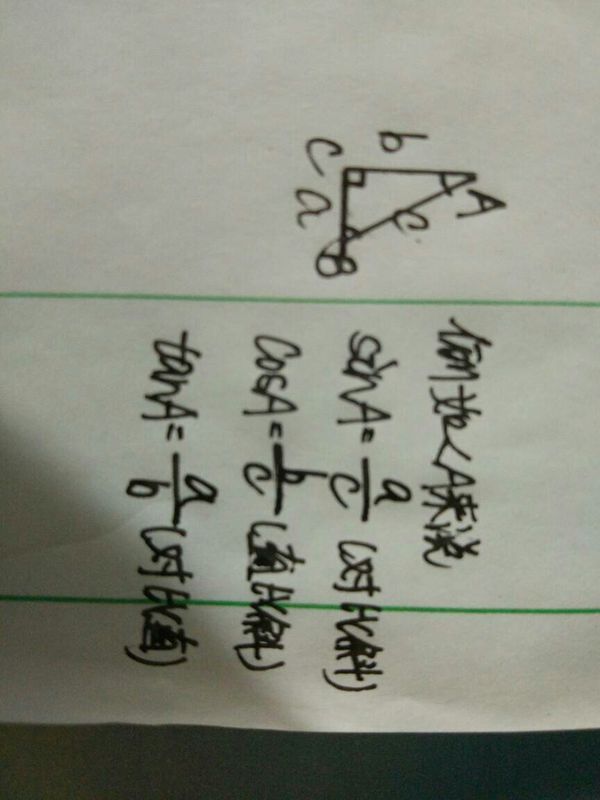 A
b
c
C
a
B
例如∠A来说
sinA=a/c(对比斜)
cosA=b/c(直比斜)
tanA=a/b(对比直)